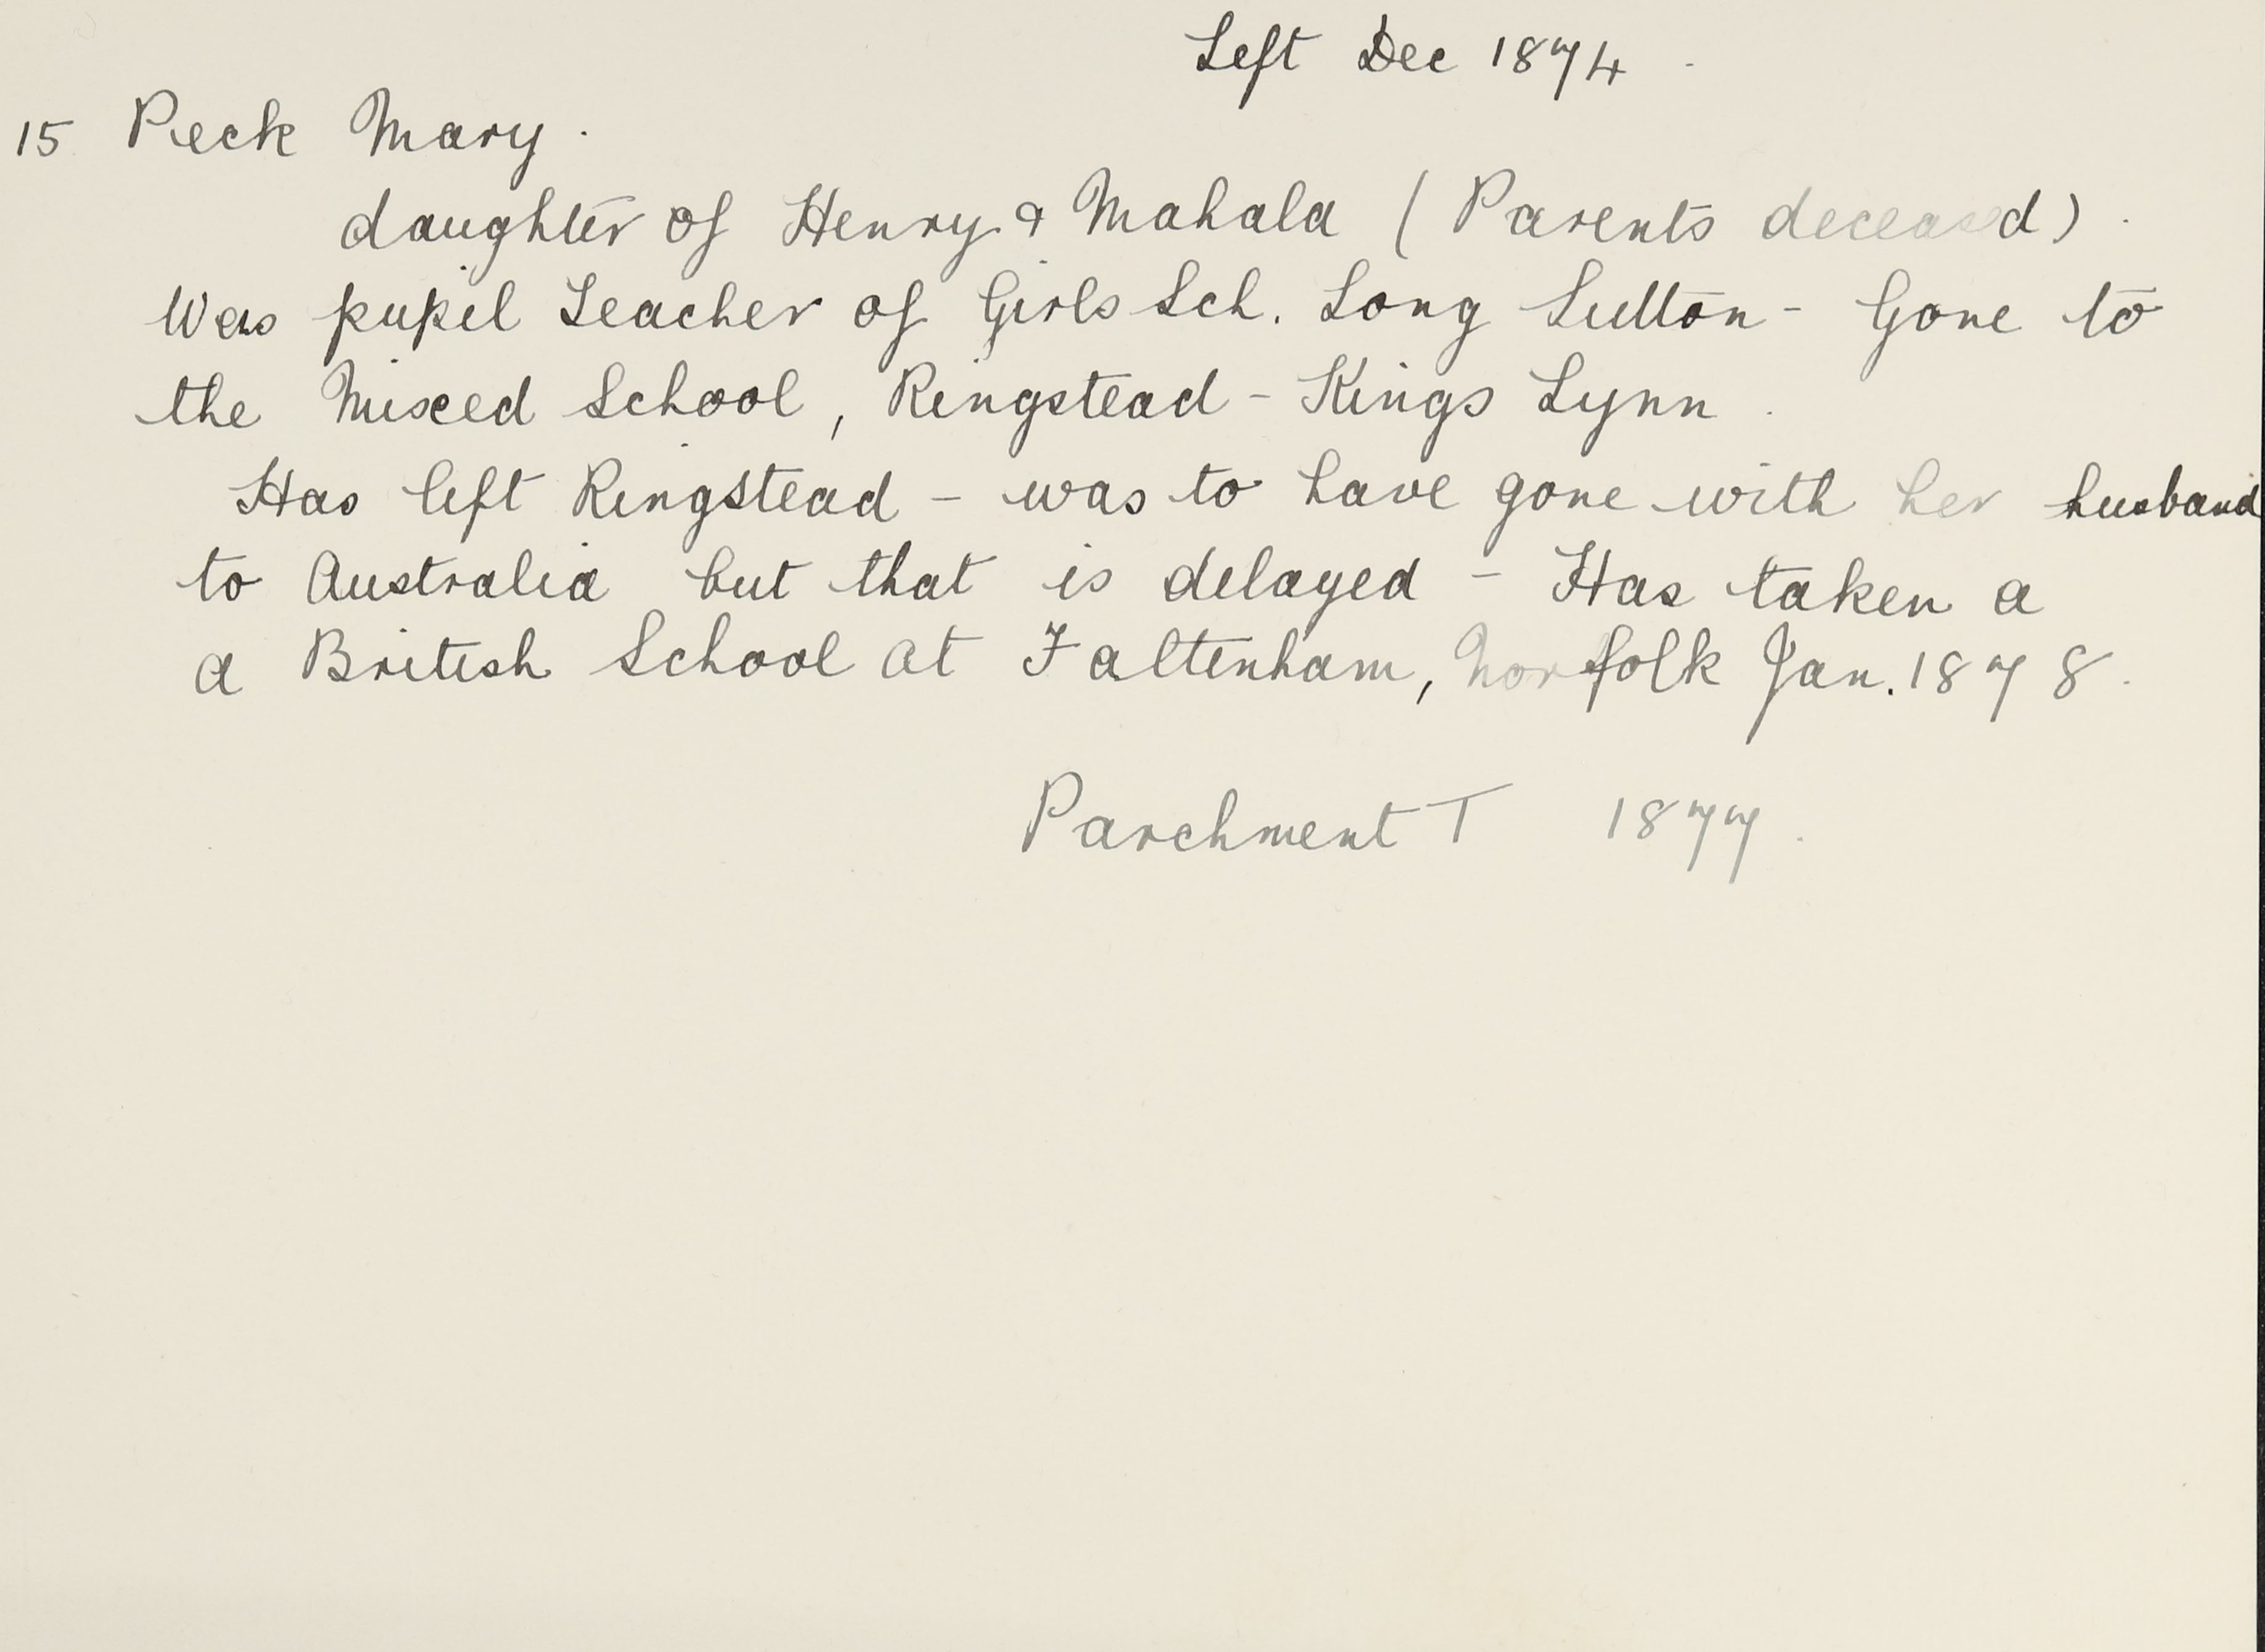 Left Dec 1874.
15 Peck Mary.
daughter of Henry & Mahala (Parents deceased).
Was pupil teacher of Girls Sch. Long Sutton - Gone to
the Mixed School, Ringstead - Kings Lynn.
Has left Ringstead - was to have gone with her husband
to Australia but that is delayed - Has taken a
a British School at Faltenham, Norfolk Jan. 1878.
Parchment T 1877.